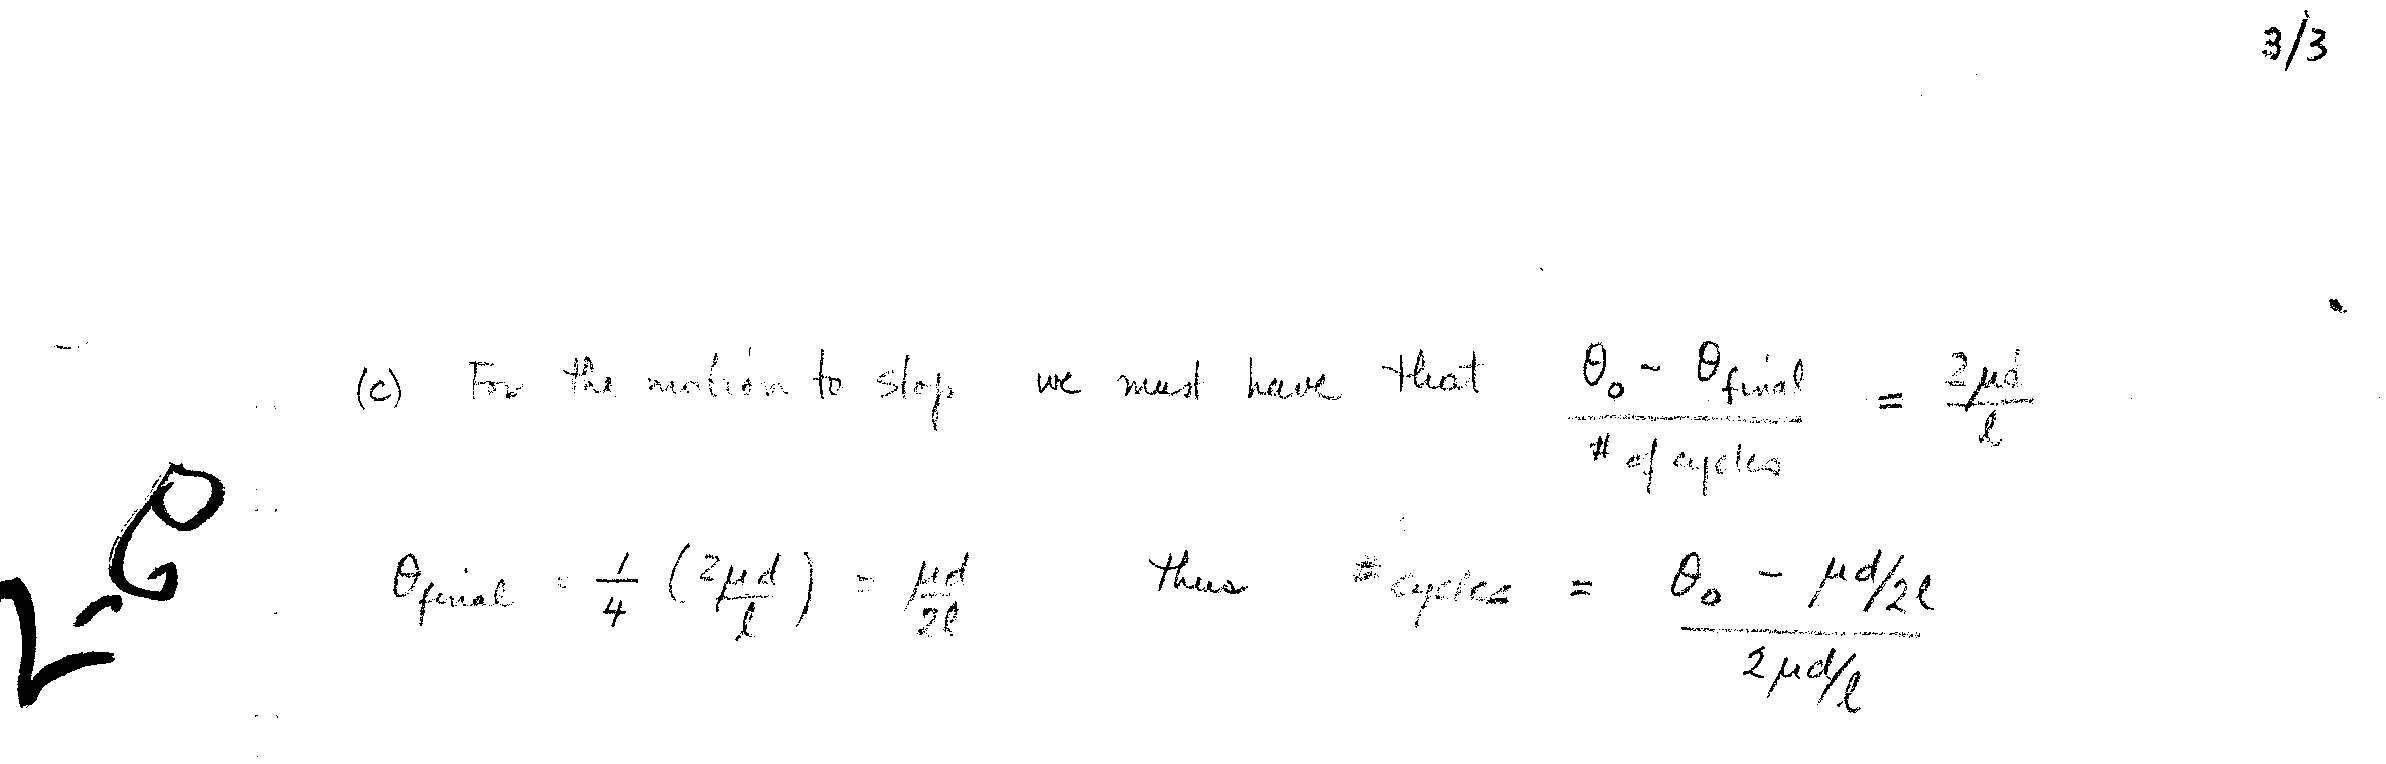 3/3
(c) For the motion to stop we must have that (θ₀ - θfinal)/(# of cycles) = 2μd/l
θfinal = 1/4 (2μd/l) = μd/2l thus # cycles = (θ₀ - μd/2l)/(2μd/l)